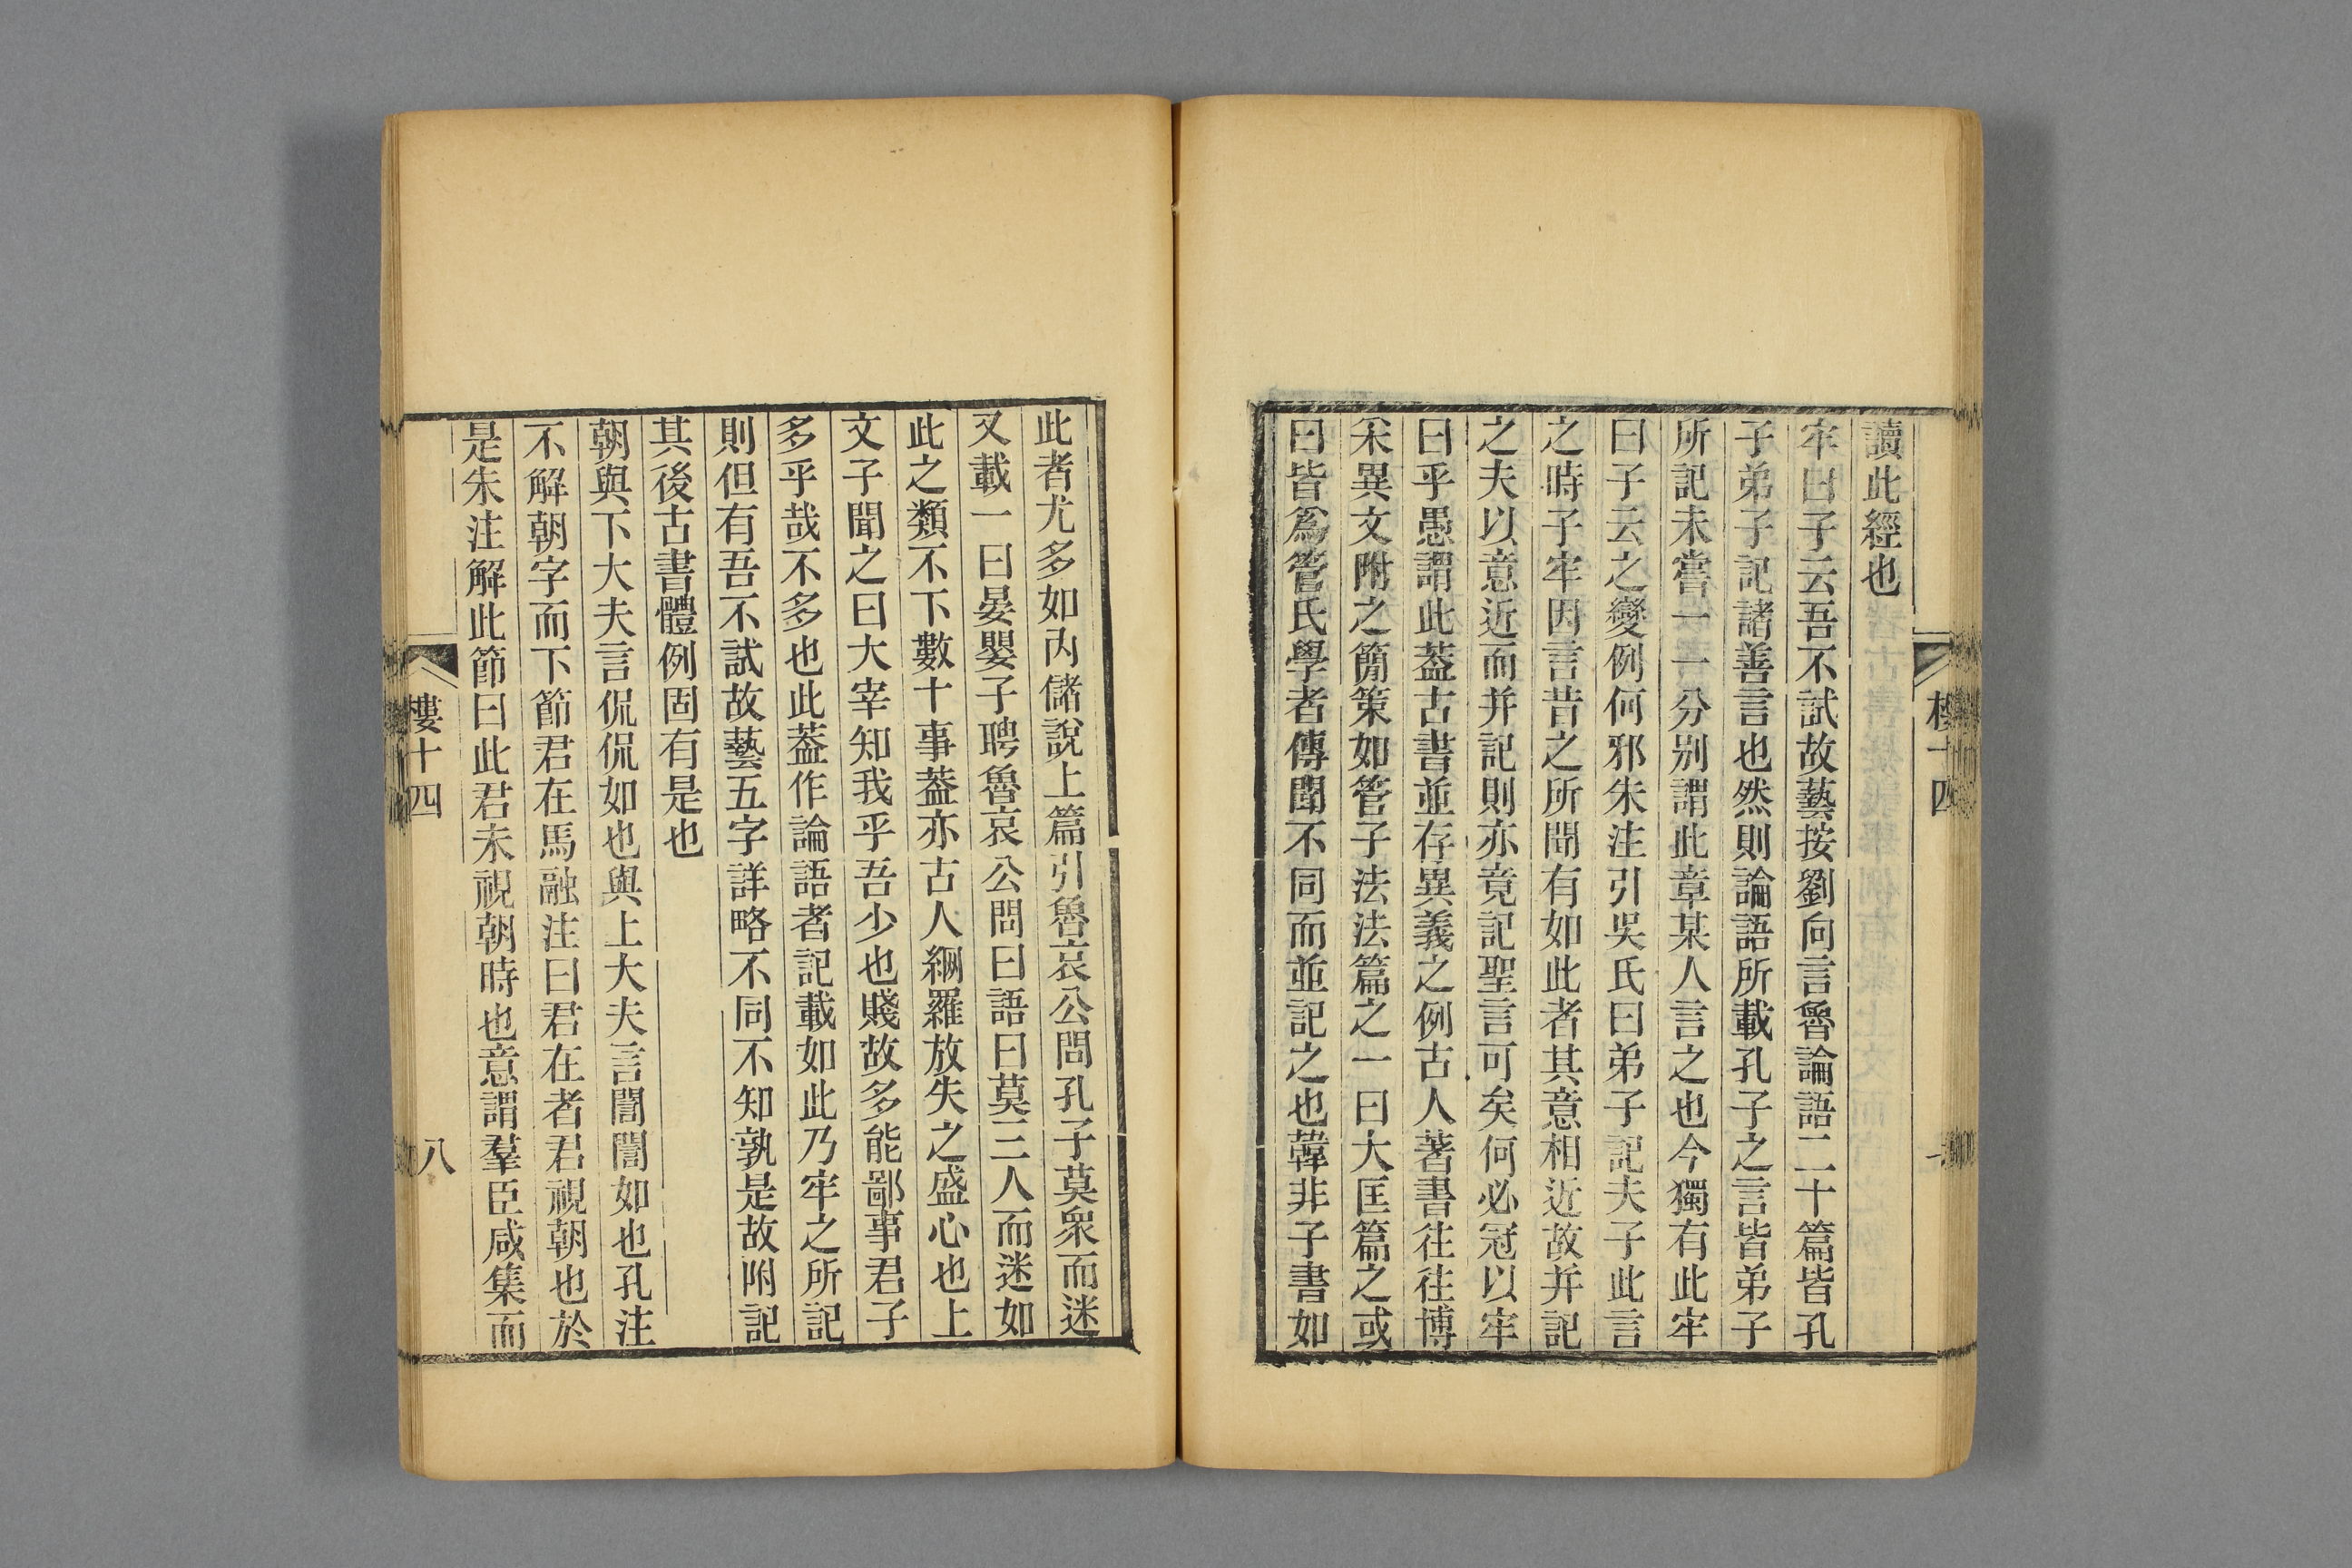 讀此經也
牢曰子云吾不試故藝按劉向言魯論語二十篇皆孔
子弟子記諸善言也然則論語所載孔子之言皆弟子
所記未嘗一一分別謂此章某人言之也今獨有此牢
曰子云之變例何邪朱注引吳氏曰弟子記夫子此言
之時子牢因言昔之所聞有如此者其意相近故并記
之夫以意近而并記則亦竟記聖言可矣何必冠以牢
曰乎愚謂此葢古書並存異義之例古人著書往往博
采異文附之簡策如管子法法篇之一曰大匡篇之或
曰皆爲管氏學者傳聞不同而並記之也韓非子書如
樓十四
此者尤多如內儲說上篇引魯哀公問孔子莫衆而迷
又載一曰晏嬰子聘魯哀公問曰語曰莫三人而迷如
此之類不下數十事葢亦古人網羅放失之盛心也上
文子聞之曰大宰知我乎吾少也賤故多能鄙事君子
多乎哉不多也此葢作論語者記載如此乃牢之所記
則但有吾不試故藝五字詳略不同不知孰是故附記
其後古書體例固有是也
朝與下大夫言侃侃如也與上大夫言誾誾如也孔注
不解朝字而下節君在馬融注曰君在者君視朝也於
是朱注解此節曰此君未視朝時也意謂羣臣咸集而
樓十四
八